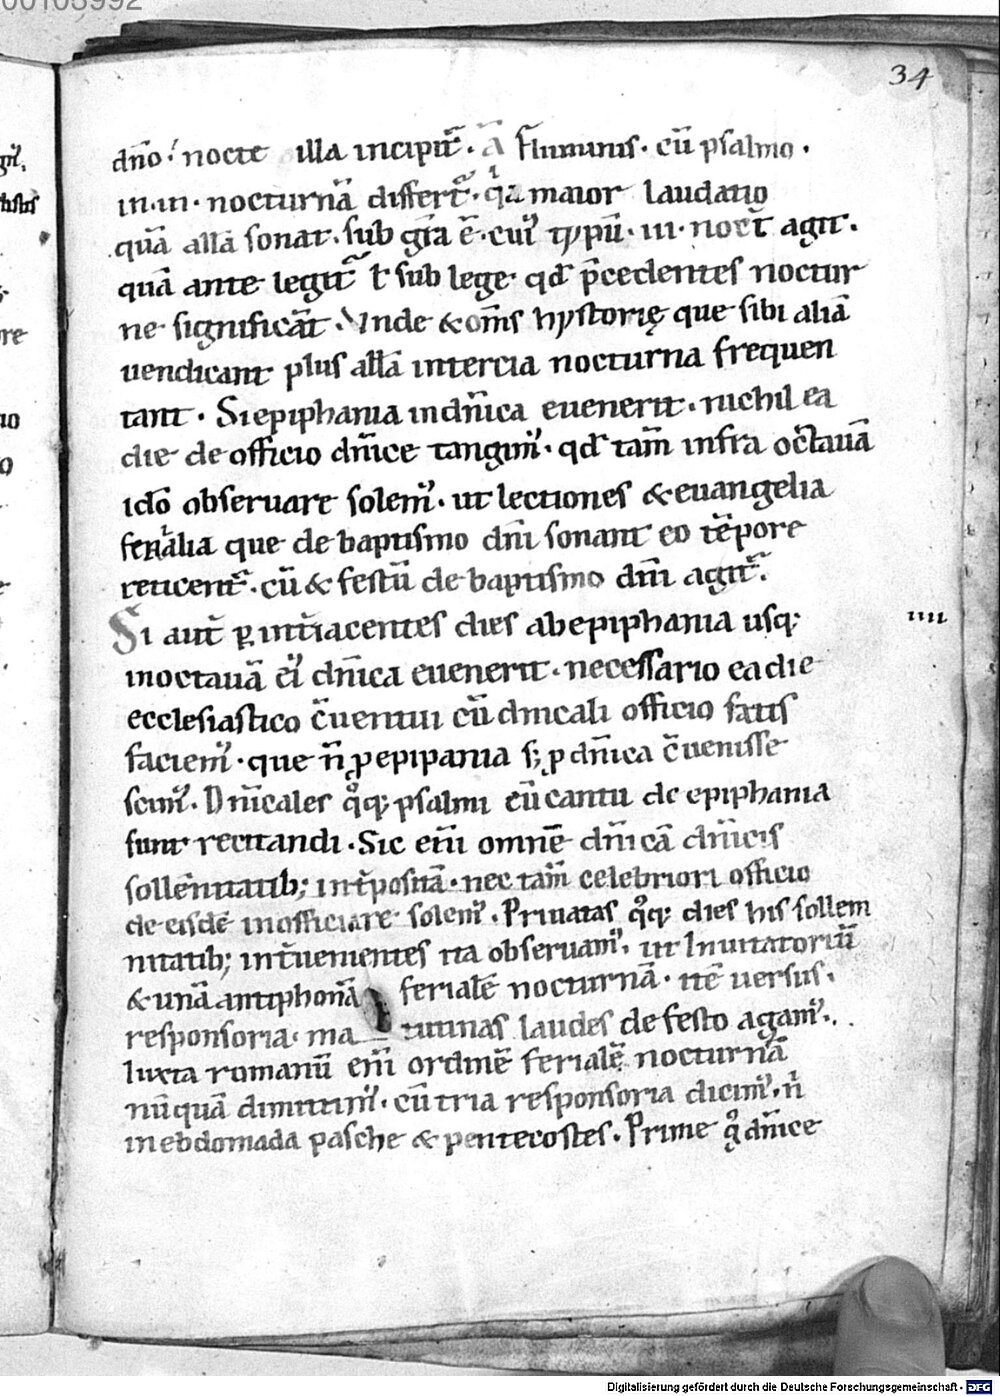 00105992
34
dn̄o · nocte illa incipit᷑ · A̅ Fluminis · cū psalmo ·
in · iii · nocturnā differt᷑ · qͥa maior laudatio
quā allā sonat · sub gr̄a ē · cuiꝰ typū · iii · noct̄ agit ·
quā ante legit᷑ ł sub lege · qđ p̄cedentes noctur
ne significāt · Vnde & om̄s hystorię que sibi aliā
uendicant plus allā intercia nocturna frequen
tant · Si epiphania in dn̄ica euenerit · nichil ea
die de officio dn̄ice tangimꝰ · qđ tam̄ infra octauā
idō obseruare solemꝰ · ut lectiones & euangelia
ferialia que de baptismo dn̄i sonant eo tēpore
reticent᷑ · cū & festū de baptismo dn̄i agit᷑ ·
Si aut̄ ꝑ int̄iacentes dies ab epiphania usqꝫ
iiii
in octauā eiꝰ dn̄ica euenerit · necessario ea die
ecclesiastico c̄uentui cū dn̄icali officio satis
faciemꝰ · que n̄ ꝓ epipania sꝫ ꝓ dn̄ica c̄uenisse
scimꝰ · Dn̄icales qͦqꝫ psalmi cū cantu de epiphania
sunt recitandi · Sic eni̅ omnē dn̄icā dn̄icis
sollēnitatibꝫ int̄positā · nec tam̄ celebriori officio
de eisdē inofficiare solemꝰ · Priuatas qͦqꝫ dies his sollem
nitatibꝫ int̄uenientes ita obseruamꝰ · ut Inuitatoriū
& unā antiphonā ferialē nocturnā · itē uersus ·
responsoria · ma tutinas laudes de festo agamꝰ ·
Iuxta romanū eni̅ ordinē ferialē nocturnā
nūquā dimittimꝰ · cū tria responsoria dicimꝰ · nͥ
in ebdomada pasche & pentecostes · Prime qͦ dn̄ice
Digitalisierung gefördert durch die Deutsche Forschungsgemeinschaft - DFG